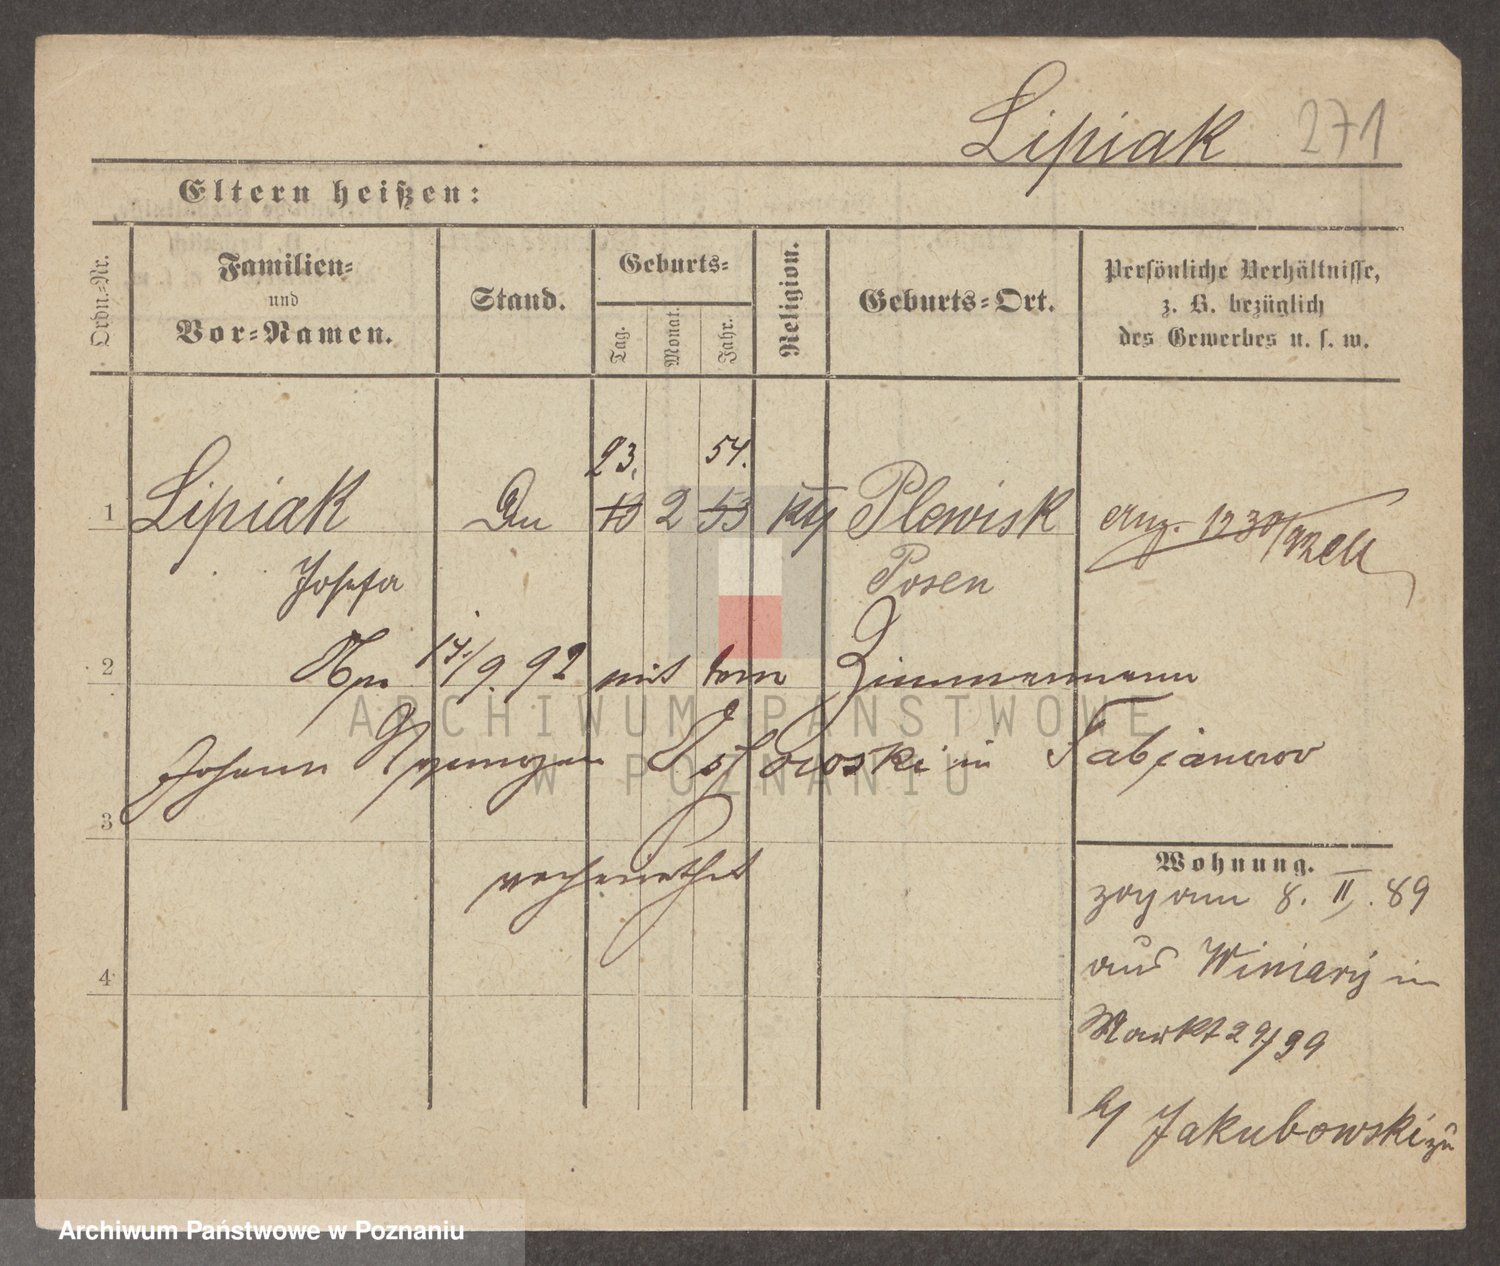 Lipiak 271
Eltern heißen:
Ordn.-Nr.
Familien-
und
Vor-Namen.
Stand.
Geburts-
Tag.
Monat.
Jahr.
Religion.
Geburts-Ort.
Persönliche Verhältnisse,
z. B. bezüglich
des Gewerbes u. s. w.
23. 54.
1 Lipiak 18 2 53 kth Plewisk
Josefa Posen
2 17./9. 92 mit dem Zimmermann
Johann in Fabianowo
3
verheirathet
4
Wohnung.
zog am 8. II. 89
aus Winiary in
Markt
b/ Jakubowski zu
ARCHIWUM PAŃSTWOWE
W POZNANIU
Archiwum Państwowe w Poznaniu